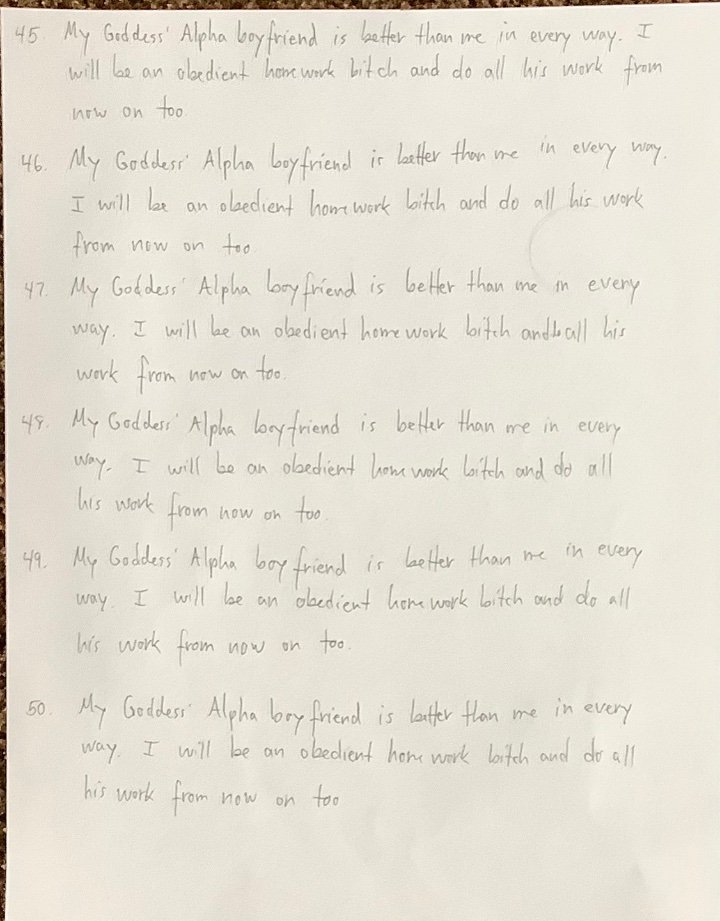 45. My Goddess' Alpha boyfriend is better than me in every way. I
will be an obedient homework bitch and do all his work from
now on too.
46. My Goddess' Alpha boyfriend is better than me in every way.
I will be an obedient homework bitch and do all his work
from now on too
47. My Goddess' Alpha boyfriend is better than me in every
way. I will be an obedient homework bitch and all his
work from now on too.
48. My Goddess' Alpha boyfriend is better than me in every
way. I will be an obedient homework bitch and do all
his work from now on too.
49. My Goddess' Alpha boyfriend is better than me in every
way. I will be an obedient homework bitch and do all
his work from now on too.
50. My Goddess' Alpha boyfriend is better than me in every
way. I will be an obedient homework bitch and do all
his work from now on too